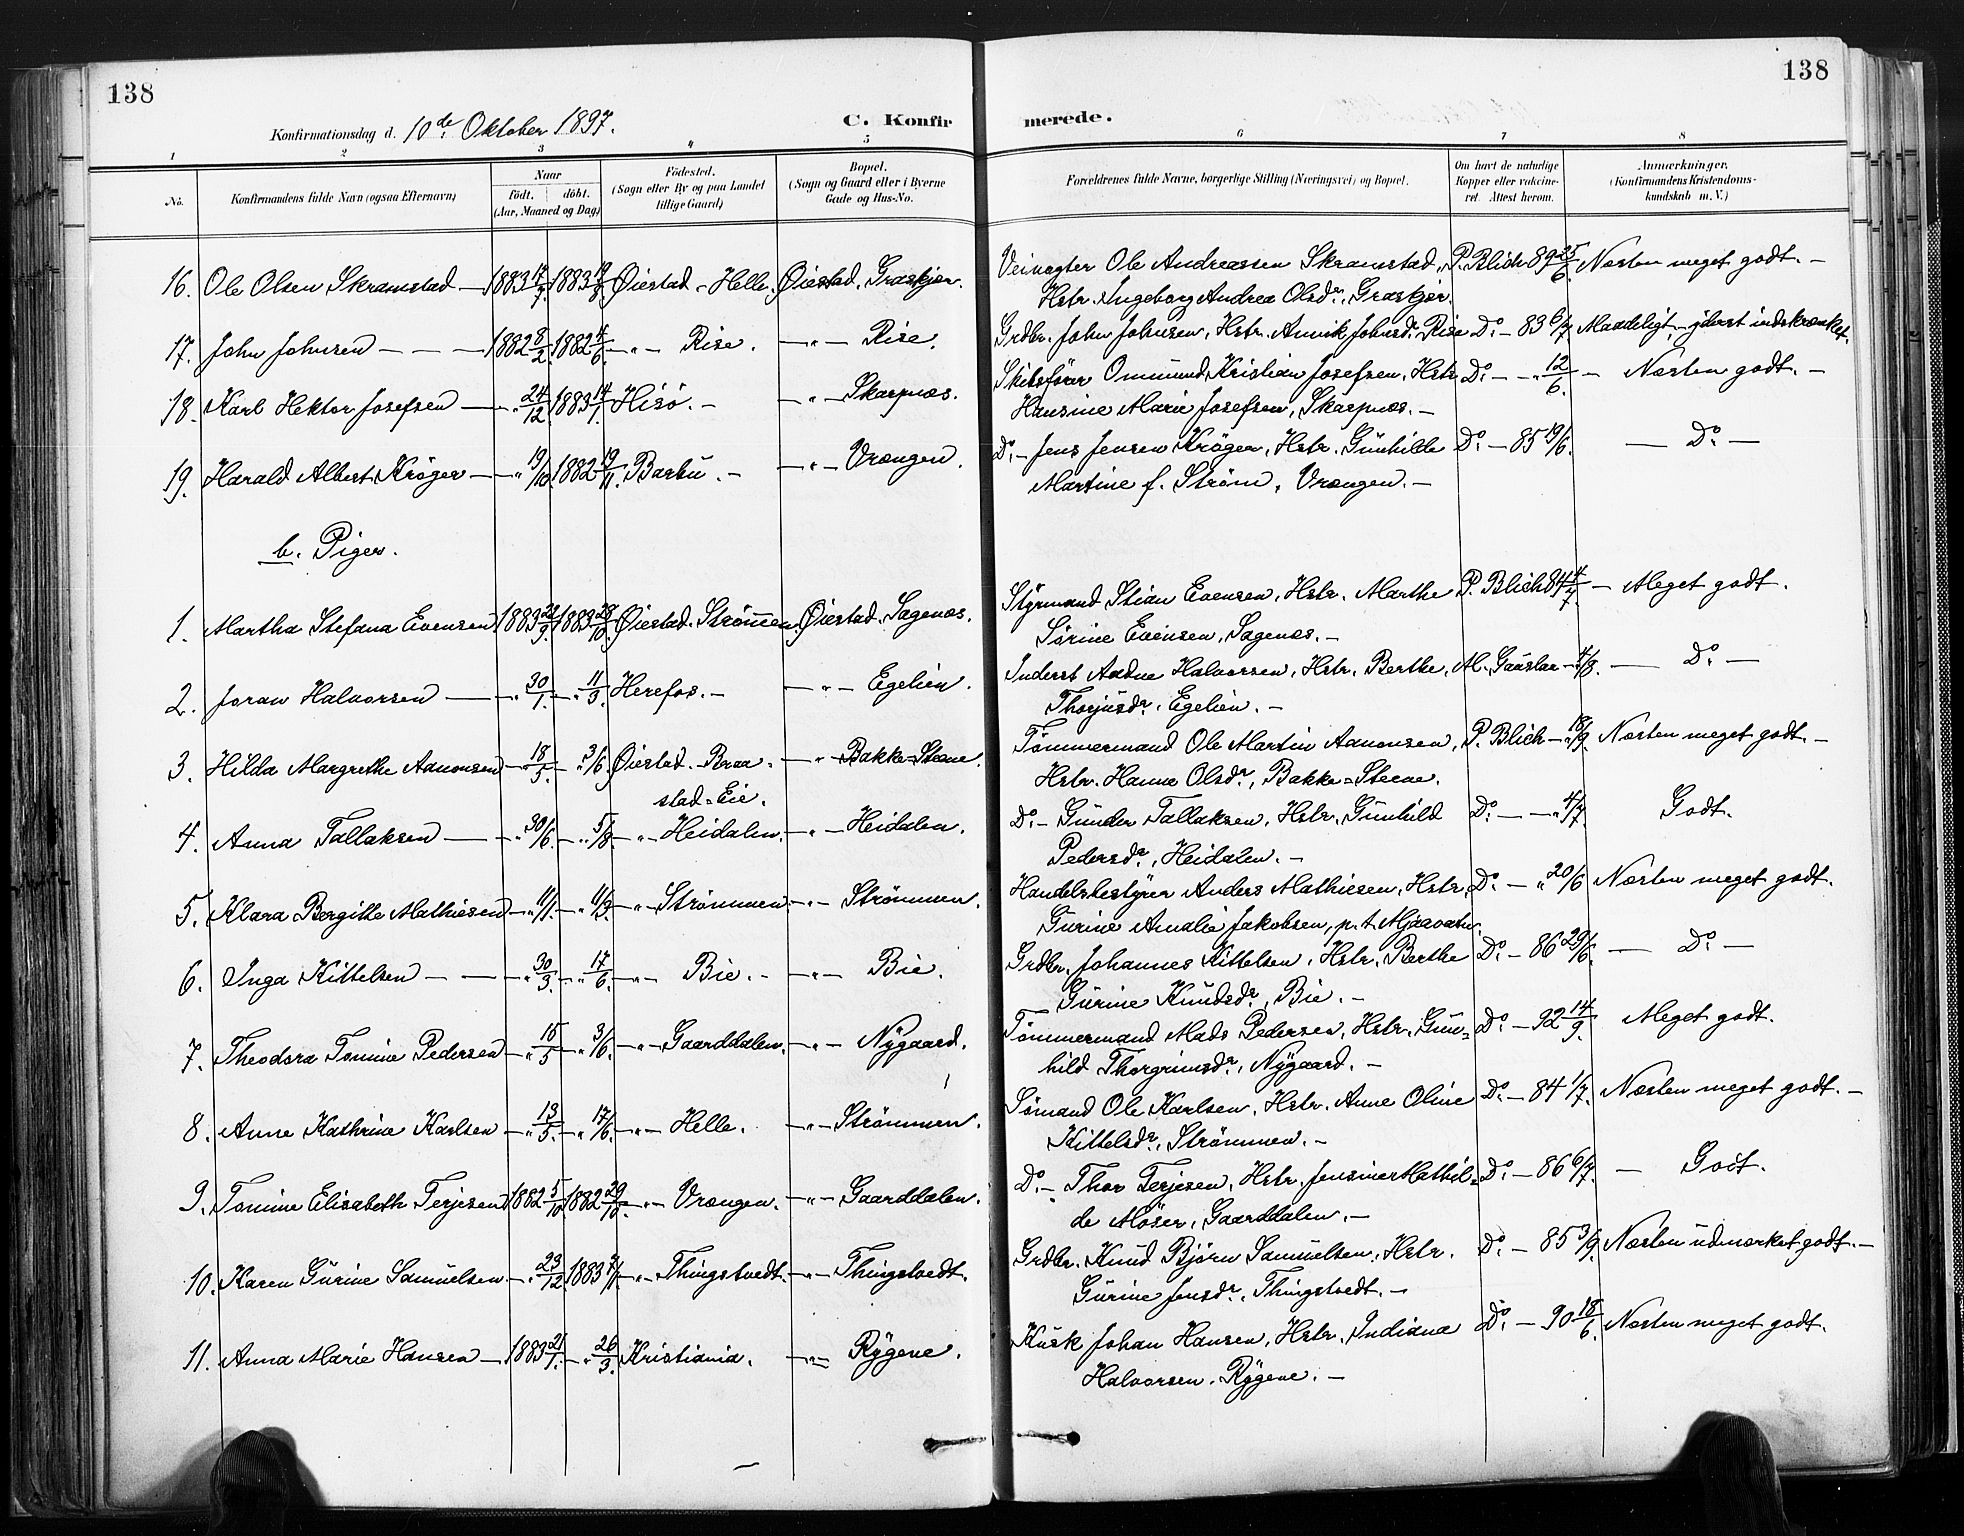 138
138
Konfirmationsdag d. 10de Oktober 1897.
C. Konfirmerede.
1 2 3 4 5 6 7 8
No.
Konfirmandens fulde Navn (ogsaa Efternavn)
Naar
født. døbt.
(Aar, Maaned og Dag)
Fødested.
(Sogn eller By og paa Landet
tillige Gaard)
Bopæl.
(Sogn og Gaard eller i Byerne
Gade og Hus-No.
Forældrenes fulde Navne, borgerlige Stilling (Næringsvei) og Bopæl.
Om havt de naturlige
Kopper eller vaccine-
ret. Attest herom.
Anmærkninger.
(Konfirmandens Kristendoms-
kundskab m. V.)
16. Ole Olsen Skramstad — 1883 17/7. 1883 19/8 Øiestad - Helle. Øiestad. Græskjær. Veivogter Ole Andreassen Skramstad, P. Blich 89 25/6. Næsten meget godt. -
Hstr. Ingeborg Andrea Olsdr., Græskjær.
17. John Johnsen - - - 1882 8/2 1882 4/6. -"- Rise. -"- Rise. Grdbr. John Johnsen, Hstr. Annik Johnsdr. Rise Do. - 83 6/7 Maadeligt, yderst indskrænket.
18. Karl Hektor Josefsen -"- 24/12. 1883 14/1. Hisø. - -"- Skarpnæs. Skibsfører Ommund Kristian Josefsen, Hstr. Do. - -"- 12/6. - Næsten godt. -
Hansine Marie Josefsen, Skarpnæs. -
19. Harald Albert Krøger -"- 19/10. 1882 19/11. Barbu. - -"- Vrængen. Do. - Jens Jensen Krøger, Hstr. Gunhilde Do. - 85 19/6. — Do. —
Martine f. Strøm, Vrængen. -
b. Piger.
1. Martha Stefana Evensen 1883 21/9. 1883 28/10. Øiestad. Strømmen. Øiestad. Sagenæs. Styrmand Stian Evensen, Hstr. Marthe P. Blich 84 4/7. - Meget godt.
Sørine Evensen, Sagenæs. -
2. Joran Halvorsen -"- 30/1. -"- 11/3 Herefos. - -"- Egelien. Inderst Aadne Halvorsen, Hstr. Berthe, M. Gauslaa -"- 4/8. — Do. —
Thorjusdr. Egelien. -
3. Hilda Margrethe Aanonsen -"- 18/5. -"- 3/6. Øiestad. Braa- -"- Bakke-Steene. Tømmermand Ole Martin Aanonsen, P. Blich -"- 18/9. Næsten meget godt. -
stad-Eie. Hstr. Hanne Olsdr., Bakke-Steene.
4. Anna Tallaksen -"- 30/6. -"- 5/8. -"- Heidalen. -"- Heidalen. Do. - Gunder Tallaksen, Hstr. Gunhild Do. - -"- 4/7. Godt.
Pedersdr., Heidalen. -
5. Klara Bergitte Mathiesen -"- 11/1. -"- 11/3. -"- Strømmen. -"- Strømmen. Handelsbestyrer Anders Mathiesen, Hstr. Do. - " 20/6 Næsten meget godt.
Gurine Amalie Jakobsen, p.t. Mjaavatn.
6. Inga Kittelsen - - -"- 30/3. -"- 17/6. -"- Bie. - -"- Bie. Grdbr. Johannes Kittelsen, Hstr. Berthe Do. - 86 29/6. — Do. —
Gurine Knudsdr., Bie. -
7. Theodora Tomine Pedersen -"- 15/5. -"- 3/6. -"- Gaarddalen. -"- Nygaard. Tømmermand Mads Pedersen, Hstr. Gun- Do. - 92 14/9. Meget godt.
hild Thorgrimsdr., Nygaard. -
8. Anne Kathrine Karlsen -"- 13/5. -"- 17/6. -"- Helle. -"- Strømmen. Sømand Ole Karlsen, Hstr. Anne Oline Do. - 84 1/7. Næsten meget godt. -
Kittelsdr., Strømmen. -
9. Tomine Elisabeth Terjesen 1882 5/10. 1882 29/10. -"- Vrængen. -"- Gaarddalen. Do. - Thor Terjesen, Hstr. Jensine Mathil- Do. - 86 6/7. - Godt.
de Møser, Gaarddalen. -
10. Karen Gurine Samuelsen -"- 23/12. 1883 7/1. -"- Thingstvedt. -"- Thingstvedt. Grdbr. Knud Bjørn Samuelsen, Hstr. Do. - 85 3/9. Næsten udmærket godt. -
Gurine Jensdr., Thingstvedt. -
11. Anna Marie Hansen - 1883 21/1. -"- 26/3. Kristiania. -"- Rygene. Kusk Johan Hansen, Hstr. Indiana Do. - 90 18/6. Næsten meget godt.
Halvorsen. Rygene. -